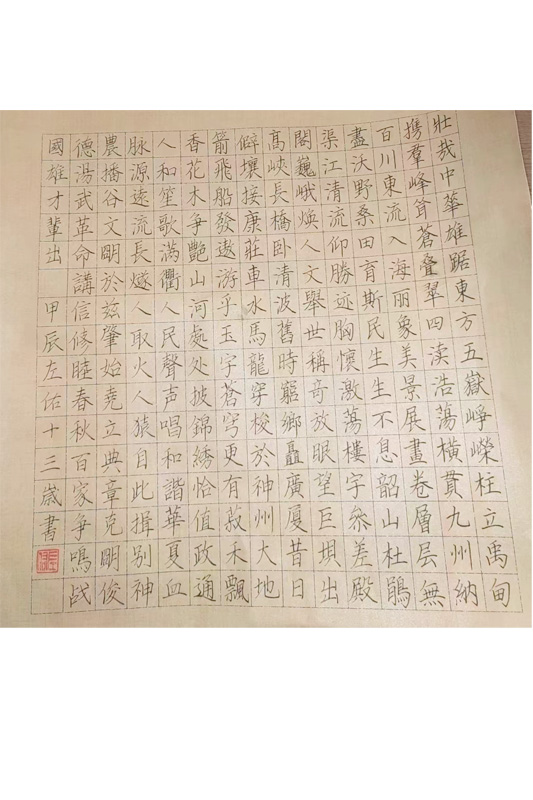 壯哉中華雄踞東方五嶽崢嶸柱立禹甸
携羣峰耸蒼叠翠四渎浩蕩橫貫九州納
百川東流入海丽象美景展畫卷層层無
盡沃野桑田育斯民生生不息韶山杜鵑
渠江清流仰勝迹胸懷激蕩樓宇叅差殿
閣巍峨焕人文舉世稱奇放眼望巨垻出
高峽長橋卧清波舊時窮鄉矗廣厦昔日
僻壤接康莊車水馬龍穿梭於神州大地
箭飛船發遨游乎玉宇蒼穹更有菽禾飄
香花木爭艷山河處处披錦綉恰值政通
人和笙歌滿衢人民聲声唱和諧華夏血
脉源遠流長燧人取火人猿自此揖别神
農播谷文明於兹肇始堯立典章克明俊
德湯武革命講信修睦春秋百家爭鳴战
國雄才輩出 甲辰左佑十三歲書